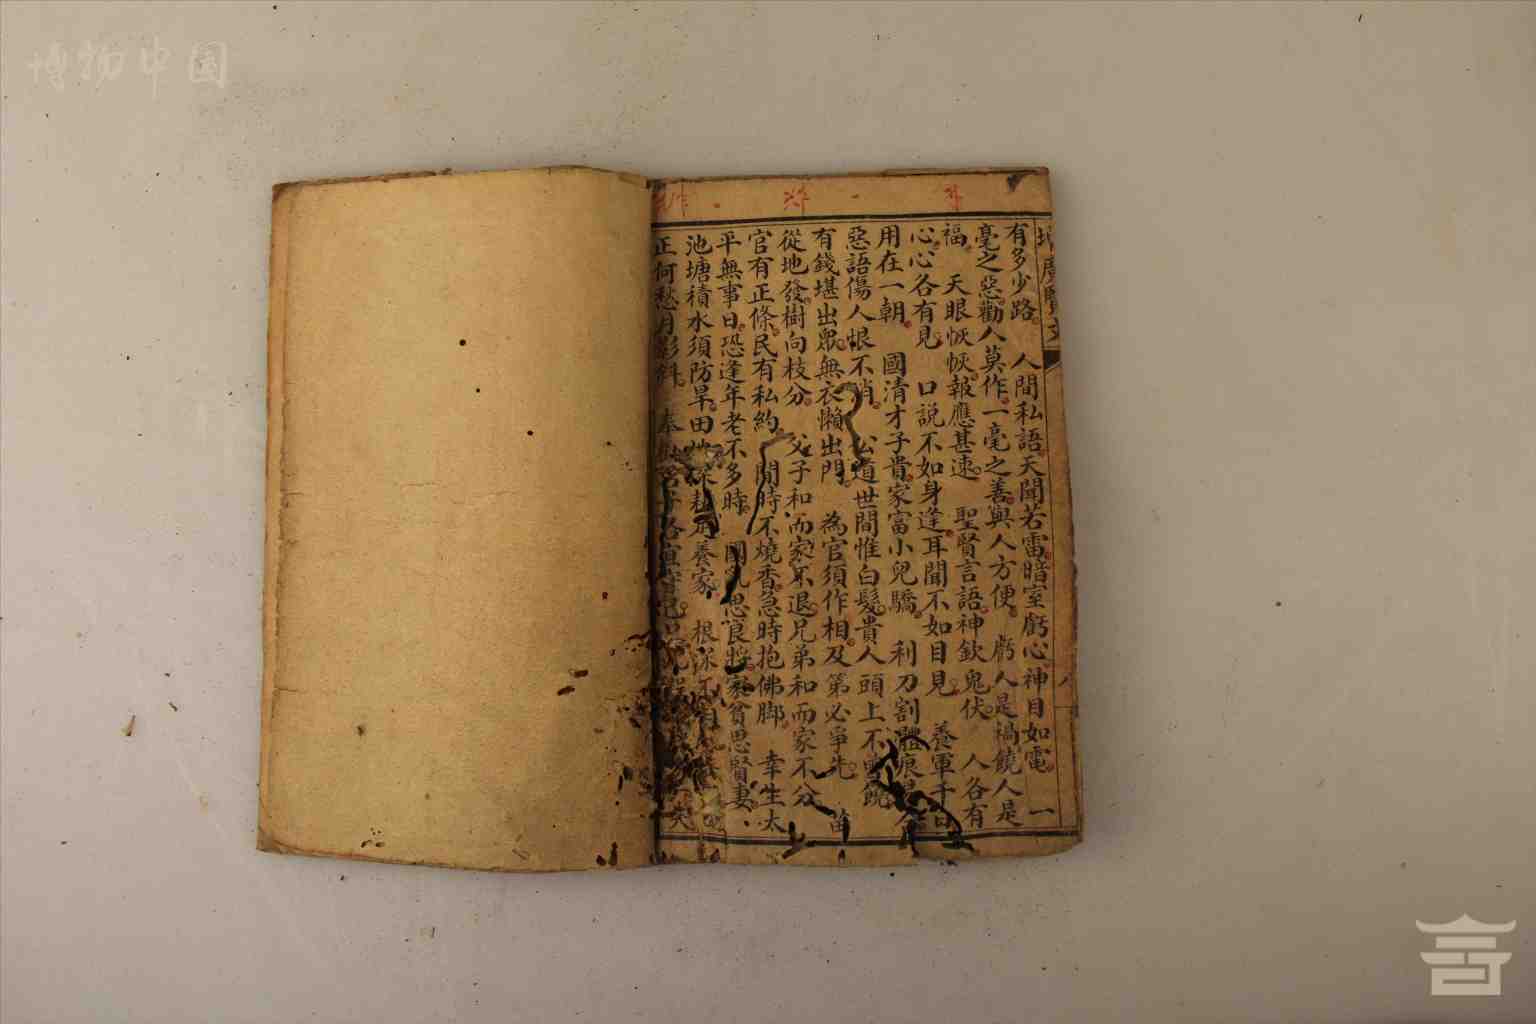 博物中国
增廣賢文 八
有多少路 人間私語天聞若雷暗室虧心神目如電 一
毫之惡勸人莫作一毫之善與人方便 虧人是禍饒人是
福 天眼恢恢報應甚速 聖賢言語神欽鬼伏 人各有
心心各有見 口說不如身逢耳聞不如目見 養軍千日
用在一朝 國清才子貴家富小兒驕 利刀割體痕
惡語傷人恨不消 公道世間惟白髮貴人頭上不饒
有錢堪出眾無衣懶出門 為官須作相及第必爭先 苗
從地發樹向枝分 父子和而家不退兄弟和而家不分
官有正條民有私約 閒時不燒香急時抱佛脚 幸生太
平無事日恐逢年老不多時 國亂思良將家貧思賢妻
池塘積水須防旱田地深耕足養家 根深不
正何愁月影斜 奉勸君子各宜守己只